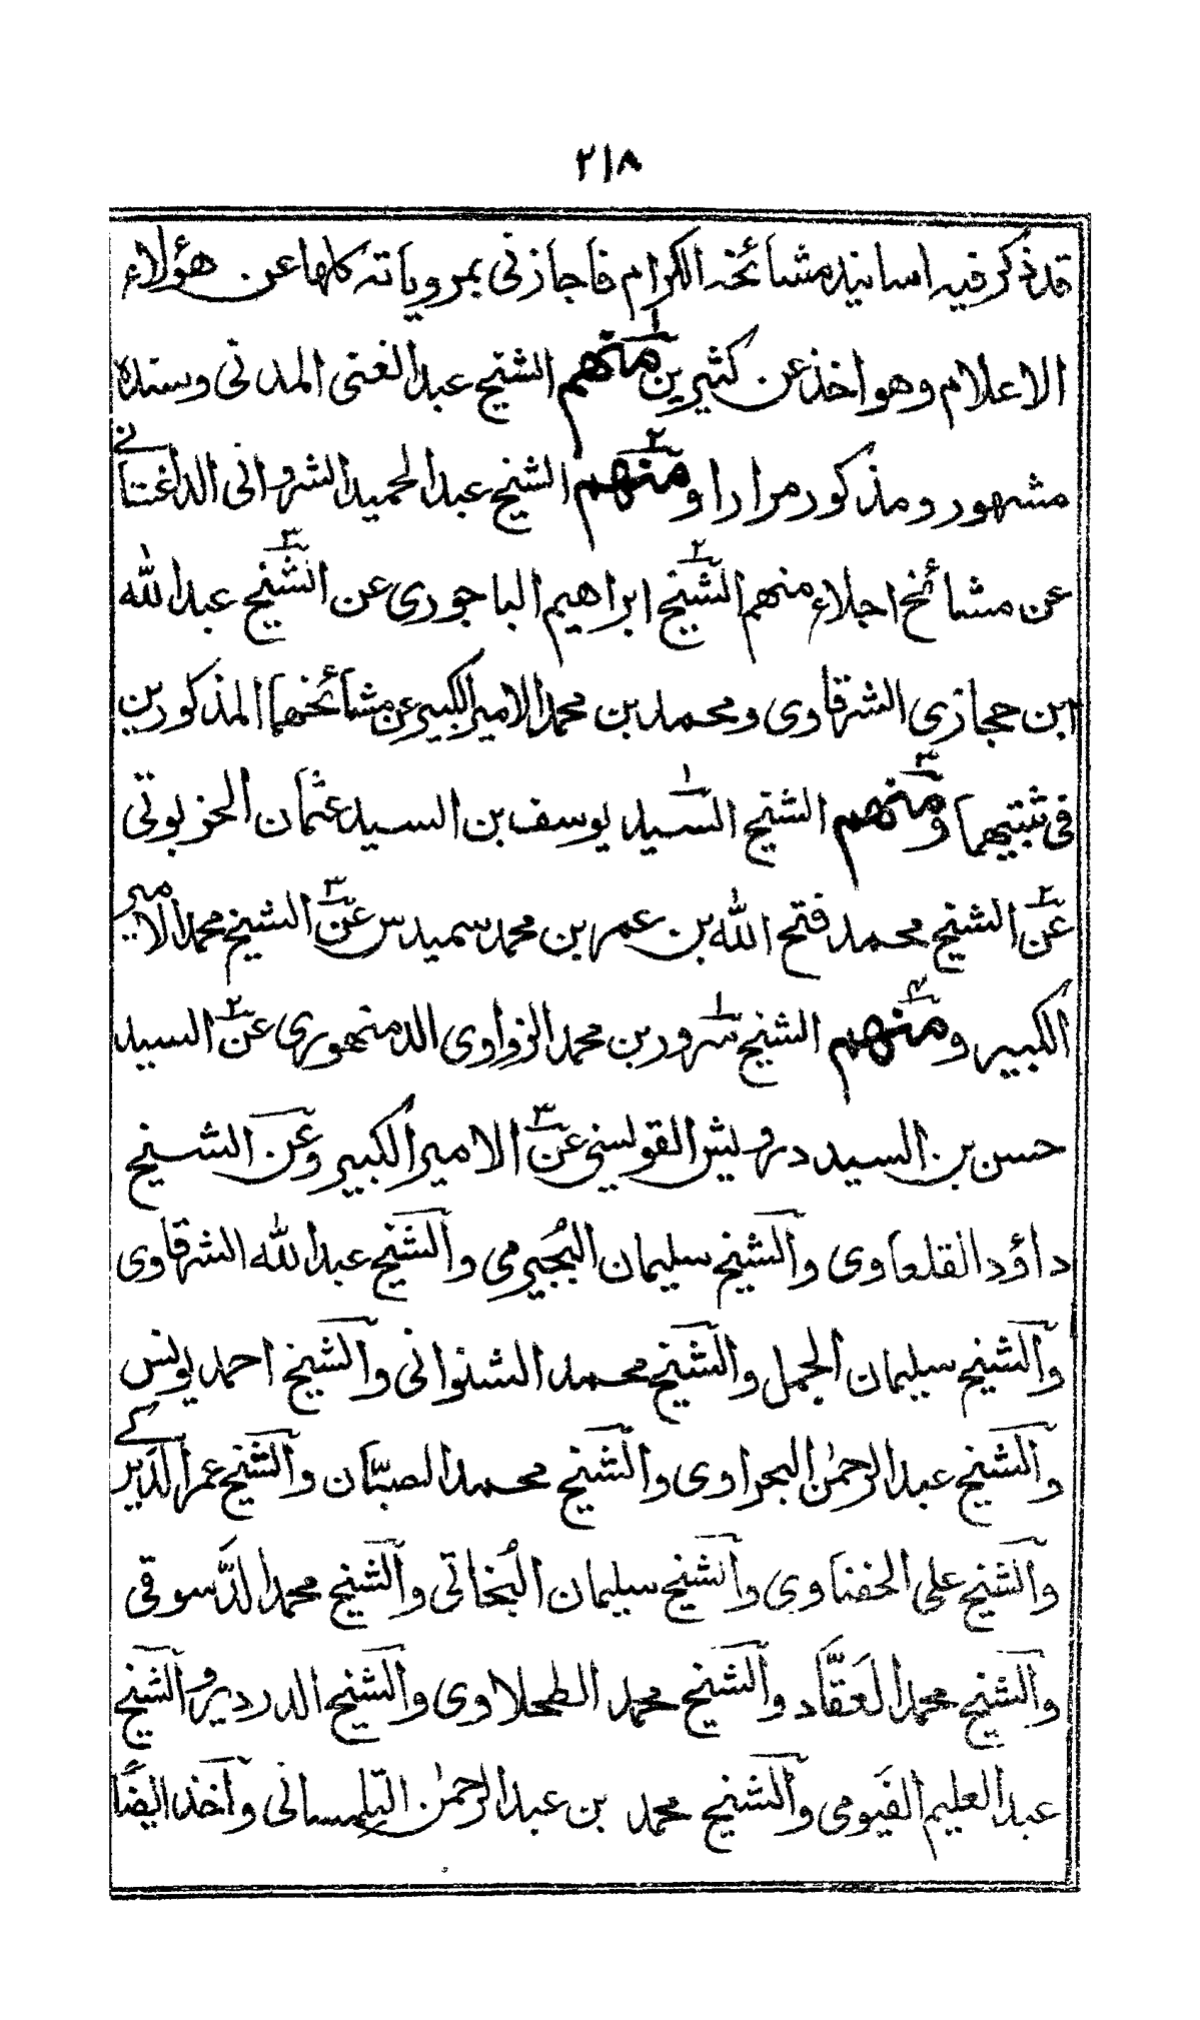 ٢١٨
قد ذكر فيه اسانيد مشائخه الكرام فاجازني بمروياته كلها عن هؤلاء
الاعلام وهو اخذ عن كثيرين ١ منهم الشيخ عبد الغني المدني وسنده
مشهور ومذكور مرارا ٢ ومنهم الشيخ عبد الحميد الشرواني الداغستاني
عن مشائخ اجلاء منهم ٢ الشيخ ابراهيم الباجوري عن ٣ الشيخ عبد الله
ابن حجازي الشرقاوي ومحمد بن محمد الامير الكبير عن مشائخهما المذكورين
في ثبتيهما ٣ ومنهم الشيخ ١ السيد يوسف بن السيد عثمان الخربوتي
٢ عن الشيخ محمد فتح الله بن عمر بن محمد سميدس ٣ عن الشيخ محمد الامير
الكبير ٤ ومنهم الشيخ ١ سرور بن محمد الزواوي الدمنهوري ٢ عن السيد
حسن بن السيد درويش القويسني ٣ عن الامير الكبير وعن الشيخ
داؤد القلعاوي والشيخ سليمان البُجيرمي والشيخ عبد الله الشرقاوي
والشيخ سليمان الجمل والشيخ محمد الشنواني والشيخ احمد يونس
والشيخ عبد الرحمٰن البحراوي والشيخ محمد الصبّان والشيخ عمر الديركے
والشيخ علي الحفناوي والشيخ سليمان البُخاتي والشيخ محمد الدَّسوقي
والشيخ محمد العَقَّاد والشيخ محمد الطحلاوي والشيخ الدردير والشيخ
عبد العليم الفَيومي والشيخ محمد بن عبد الرحمٰن التِلِمساني واخذ ايضًا